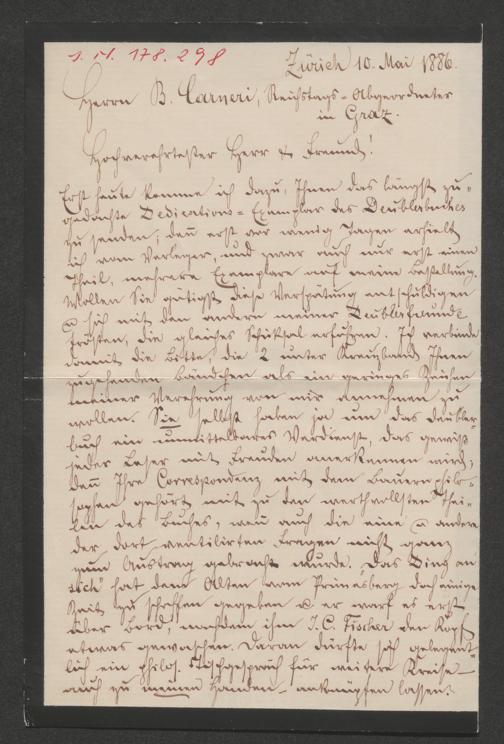 I. N. 178.298
Zürich 10. Mai 1886.
Herrn B. Carneri, Reichstags-Abgeordneter
in Graz.
Hochverehrtester Herr & Freund!
Erst heute komme ich dazu, Ihnen das längst zu-
gedachte Dedications-Exemplar des Deublerbuches
zu senden; denn erst vor wenig Tagen erhielt
ich vom Verleger, und zwar auch nur erst einen
Theil, mehrere Exemplare auf meine Bestellung.
Wollen Sie gütigst diese Verspätung entschuldigen
& sich mit den andern meiner Deublerfreunde
trösten, die gleiches Schicksal erfuhren. Ich verbinde
damit die Bitte, die 2 unter Kreuzband Ihnen
zugehenden Bändchen als ein geringes Zeichen
meiner Verehrung von mir annehmen zu
wollen. Sie selbst haben ja um das Deubler-
buch ein unmittelbares Verdienst, das gewiß
jeder Leser mit Freuden anerkennen wird;
denn Ihre Correspondenz mit dem Bauernphilo-
sophen gehört mit zu den werthvollsten Thei-
len des Buches, wenn auch die eine & andere
der dort ventilirten Fragen nicht ganz
zum Austrag gebracht wurde. "Das Ding an
sich" hat dem Alten vom Primesberg doch einige
Zeit zu schaffen gegeben & er warf es erst
über Bord, nachdem ihm J. C. Fischer den Kopf
etwas gewaschen. Daran dürfte sich gelegent-
lich ein philos. Tischgespräch für weitere Kreise –
auch zu meinen Handen – anknüpfen lassen.